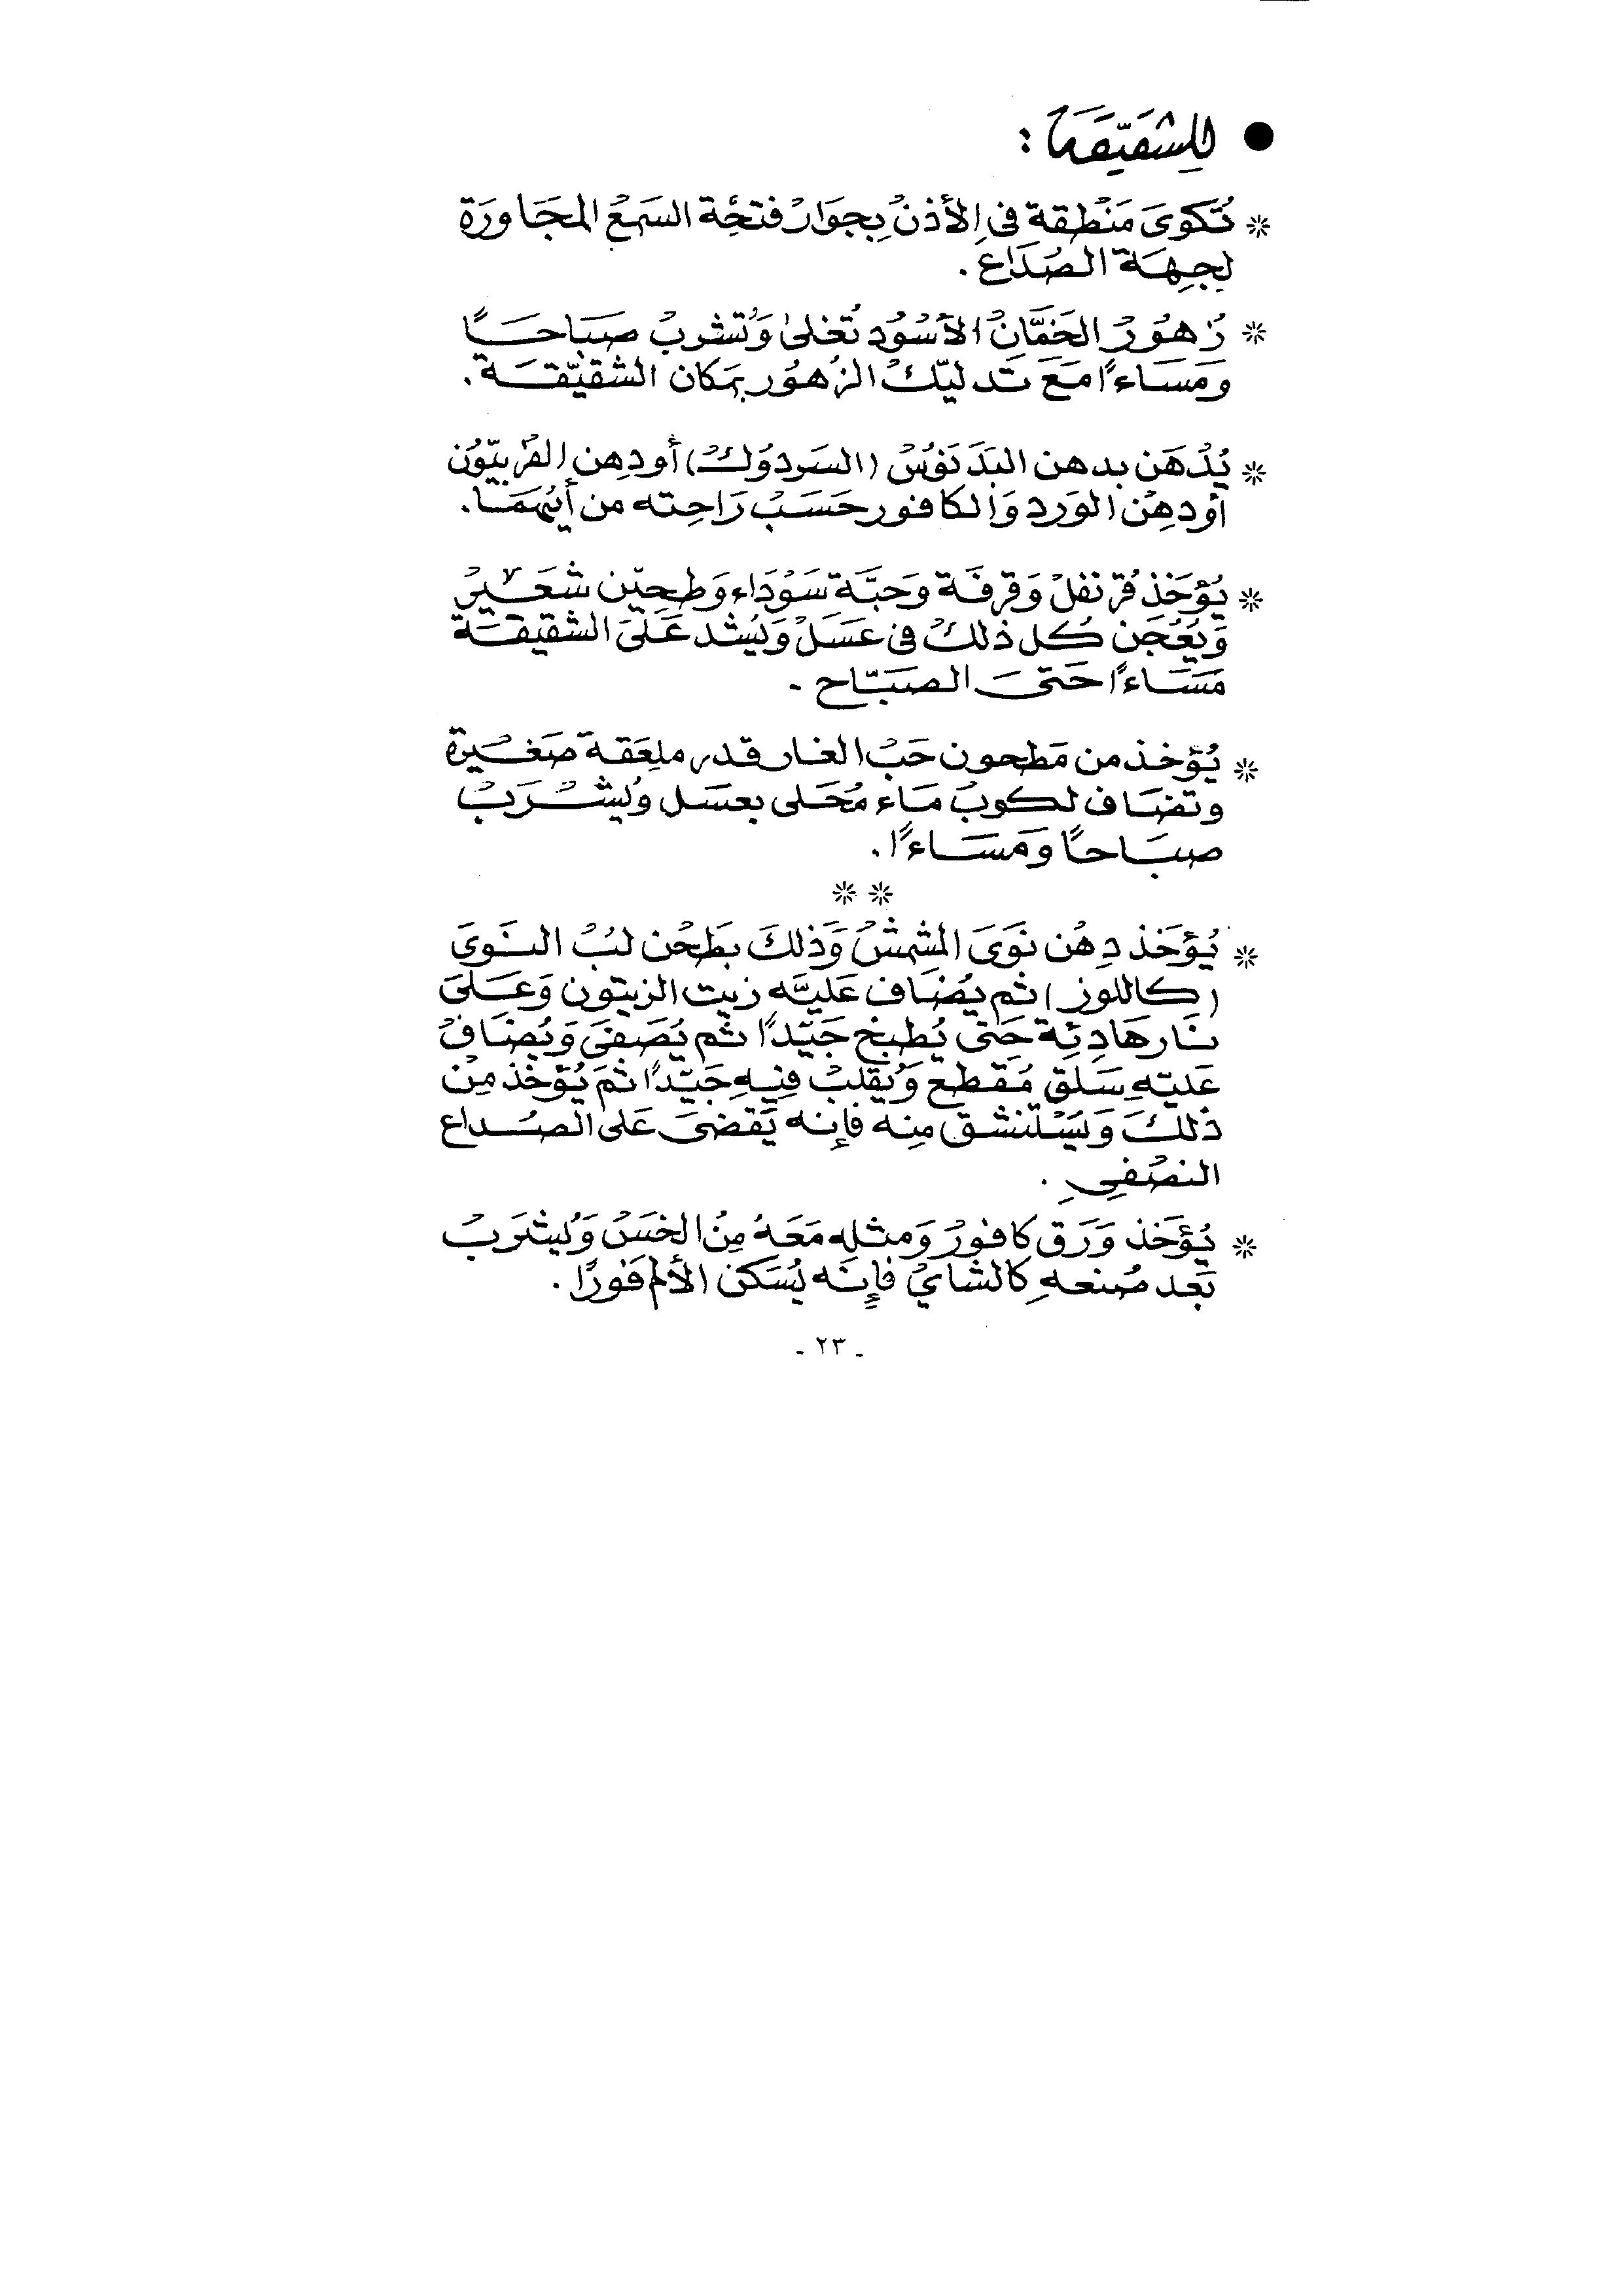 ● للشقيقة :
* تُكوىَ مَنْطِقة في الأذنْ بِجوَارْ فتحْة السَمعْ المجَاورَة
لجِهَة الصُدَاعْ .
* زُهوُرْ الخَمَّانْ الأسْوُدِ تُغلىٰ وَتُشربْ صَبَاحَـــًا
وَمسَاءًا مَعَ تَدليّكْ الزهُوُر بمَكان الشقيّقـــَة .
* يُدْهَن بدهن البَدَنوُسْ (السَردوُكْ) أو دِهن الفُربيّوُن
أو دِهْن الوَرد وَالكافور حَسَبْ رَاحِته من أيهُمَــا .
* يُؤخَذ قُرنفلْ وَقرفَة وَحَبَّة سَوْدَاء وَطحِيّن شعَــيرْ
وَيعُجَن كُل ذلكْ في عسَلْ وَيُشد عَلىَ الشقيقــَة
مَسَــاءًا حَتىَ الصبَـّاح .
* يُؤخذ من مَطحون حَبْ الغار قدر ملعَقة صَغــيْرة
وتضَاف لكوبْ مَاء مُحَلى بعسَل وَيُشــرَبْ
صبَــاحًا وَمَســَاءًا .
* *
* يُؤخَذ دِهُن نوَىَ المشمشْ وَذلكَ بطَحْن لبْ النـَوىَ
(كاللوز) ثم يُضَاف عَليَّه زيت الزيتون وَعَــلىَ
نـَار هَادِئِة حَتىَ يُطبخ جَيّدًا ثم يُصَفىَ وَيُضَافْ
عَليّهِ سَلق مُقطع وَيُقلبْ فِيهِ جَيّدًا ثمَ يُؤخذ مِنْ
ذلكَ وَيسَتنشق مِنه فإنه يَقضىَ عَلى الصُــداع
النصْفىِ .
* يُؤخَذ وَرَق كافورْ وَمثله مَعَهُ مِنْ الخسَنْ وَيُشرَبْ
بَعد صُنعهِ كالشايْ فإِنَه يُسَكن الألم فَورًا .
- ٢٣ -